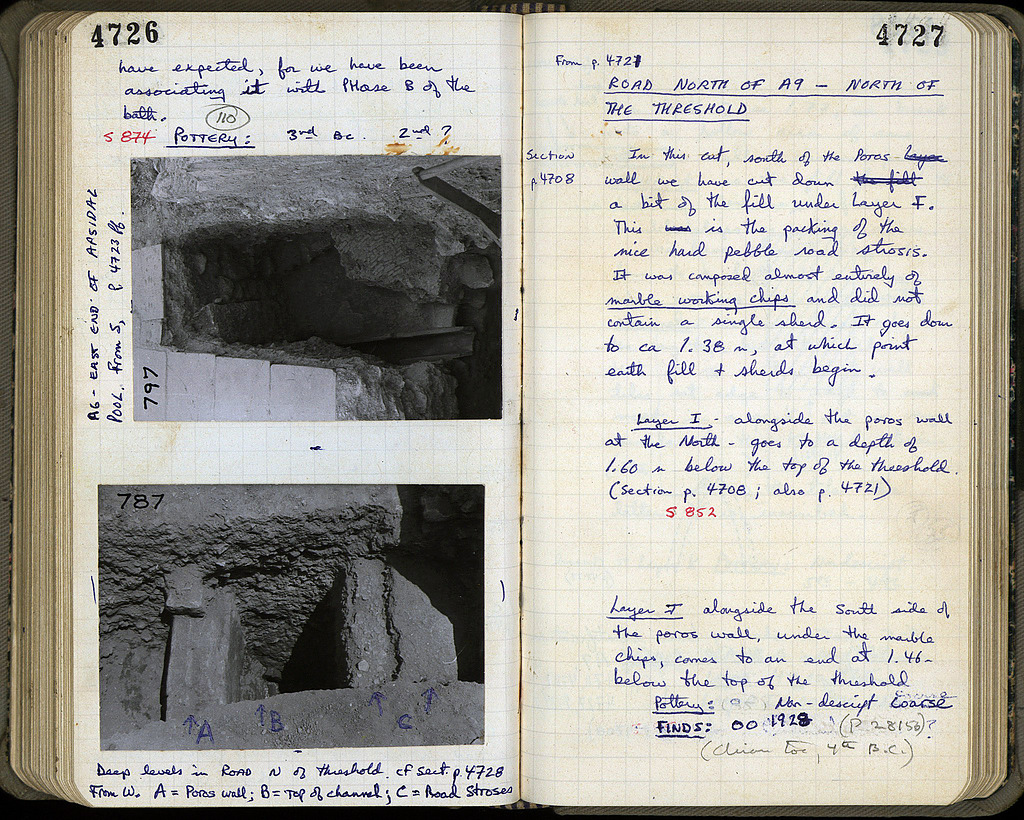 4726
have expected, for we have been
associating it with Phase B of the
bath.
110
S 874 POTTERY: 3rd BC. 2nd ?
A6 - EAST END OF APSIDAL
POOL. From S, p. 4723 ff.
797
787
A B C
Deep levels in ROAD N of threshold. cf sect. p. 4728
From W. A = Poros wall; B = Top of channel; C = Road Stroses
4727
From p. 4721
ROAD NORTH OF A9 - NORTH OF
THE THRESHOLD
Section
p. 4708
In this cut, south of the Poros layer
wall we have cut down the fill
a bit of the fill under Layer I.
This was is the packing of the
nice hard pebble road strosis.
It was composed almost entirely of
marble working chips and did not
contain a single sherd. It goes down
to ca 1.38 m, at which point
earth fill + sherds begin.
Layer I - alongside the poros wall
at the North - goes to a depth of
1.60 m below the top of the threshold.
(Section p. 4708; also p. 4721)
S 852
Layer I alongside the South side of
the poros wall, under the marble
chips, comes to an end at 1.46-
below the top of the threshold
Pottery: Non-descript coarse
FINDS: 00 1928 (P 28156)?
(Chian toe, 4th B.C.)